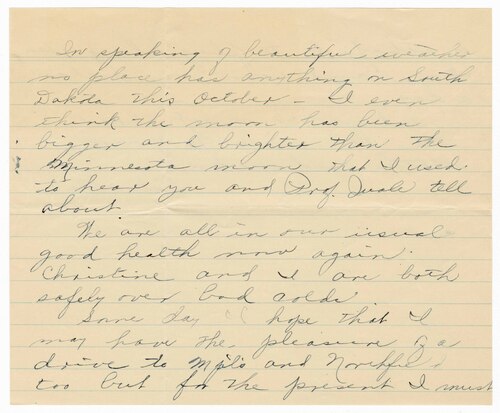 In speaking of beautiful weather
no place has anything on South
Dakota this October – I even
think the moon has been
bigger and brighter than the
Minnesota moon that I used
to hear you and Prof. tell
about
We are all in our usual
good health now again.
Christine and I are both
safely over bad colds
Some day I hope that I
may have the pleasure of a
drive to Mpls and Northfield
too but for the present I must